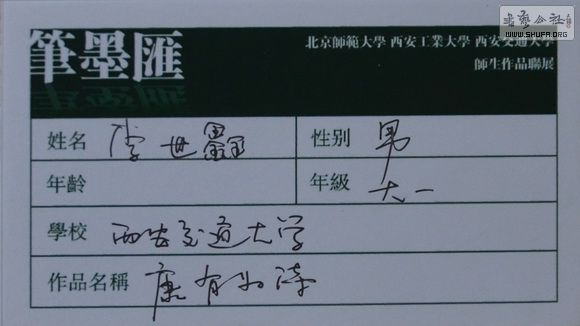 書法公社
WWW.SHUFA.ORG
筆墨匯
北京師範大學 西安工業大學 西安交通大學
師生作品聯展
姓名 李世鑫 性別 男
年齡 年級 大一
學校 西安交通大学
作品名稱 康有为诗